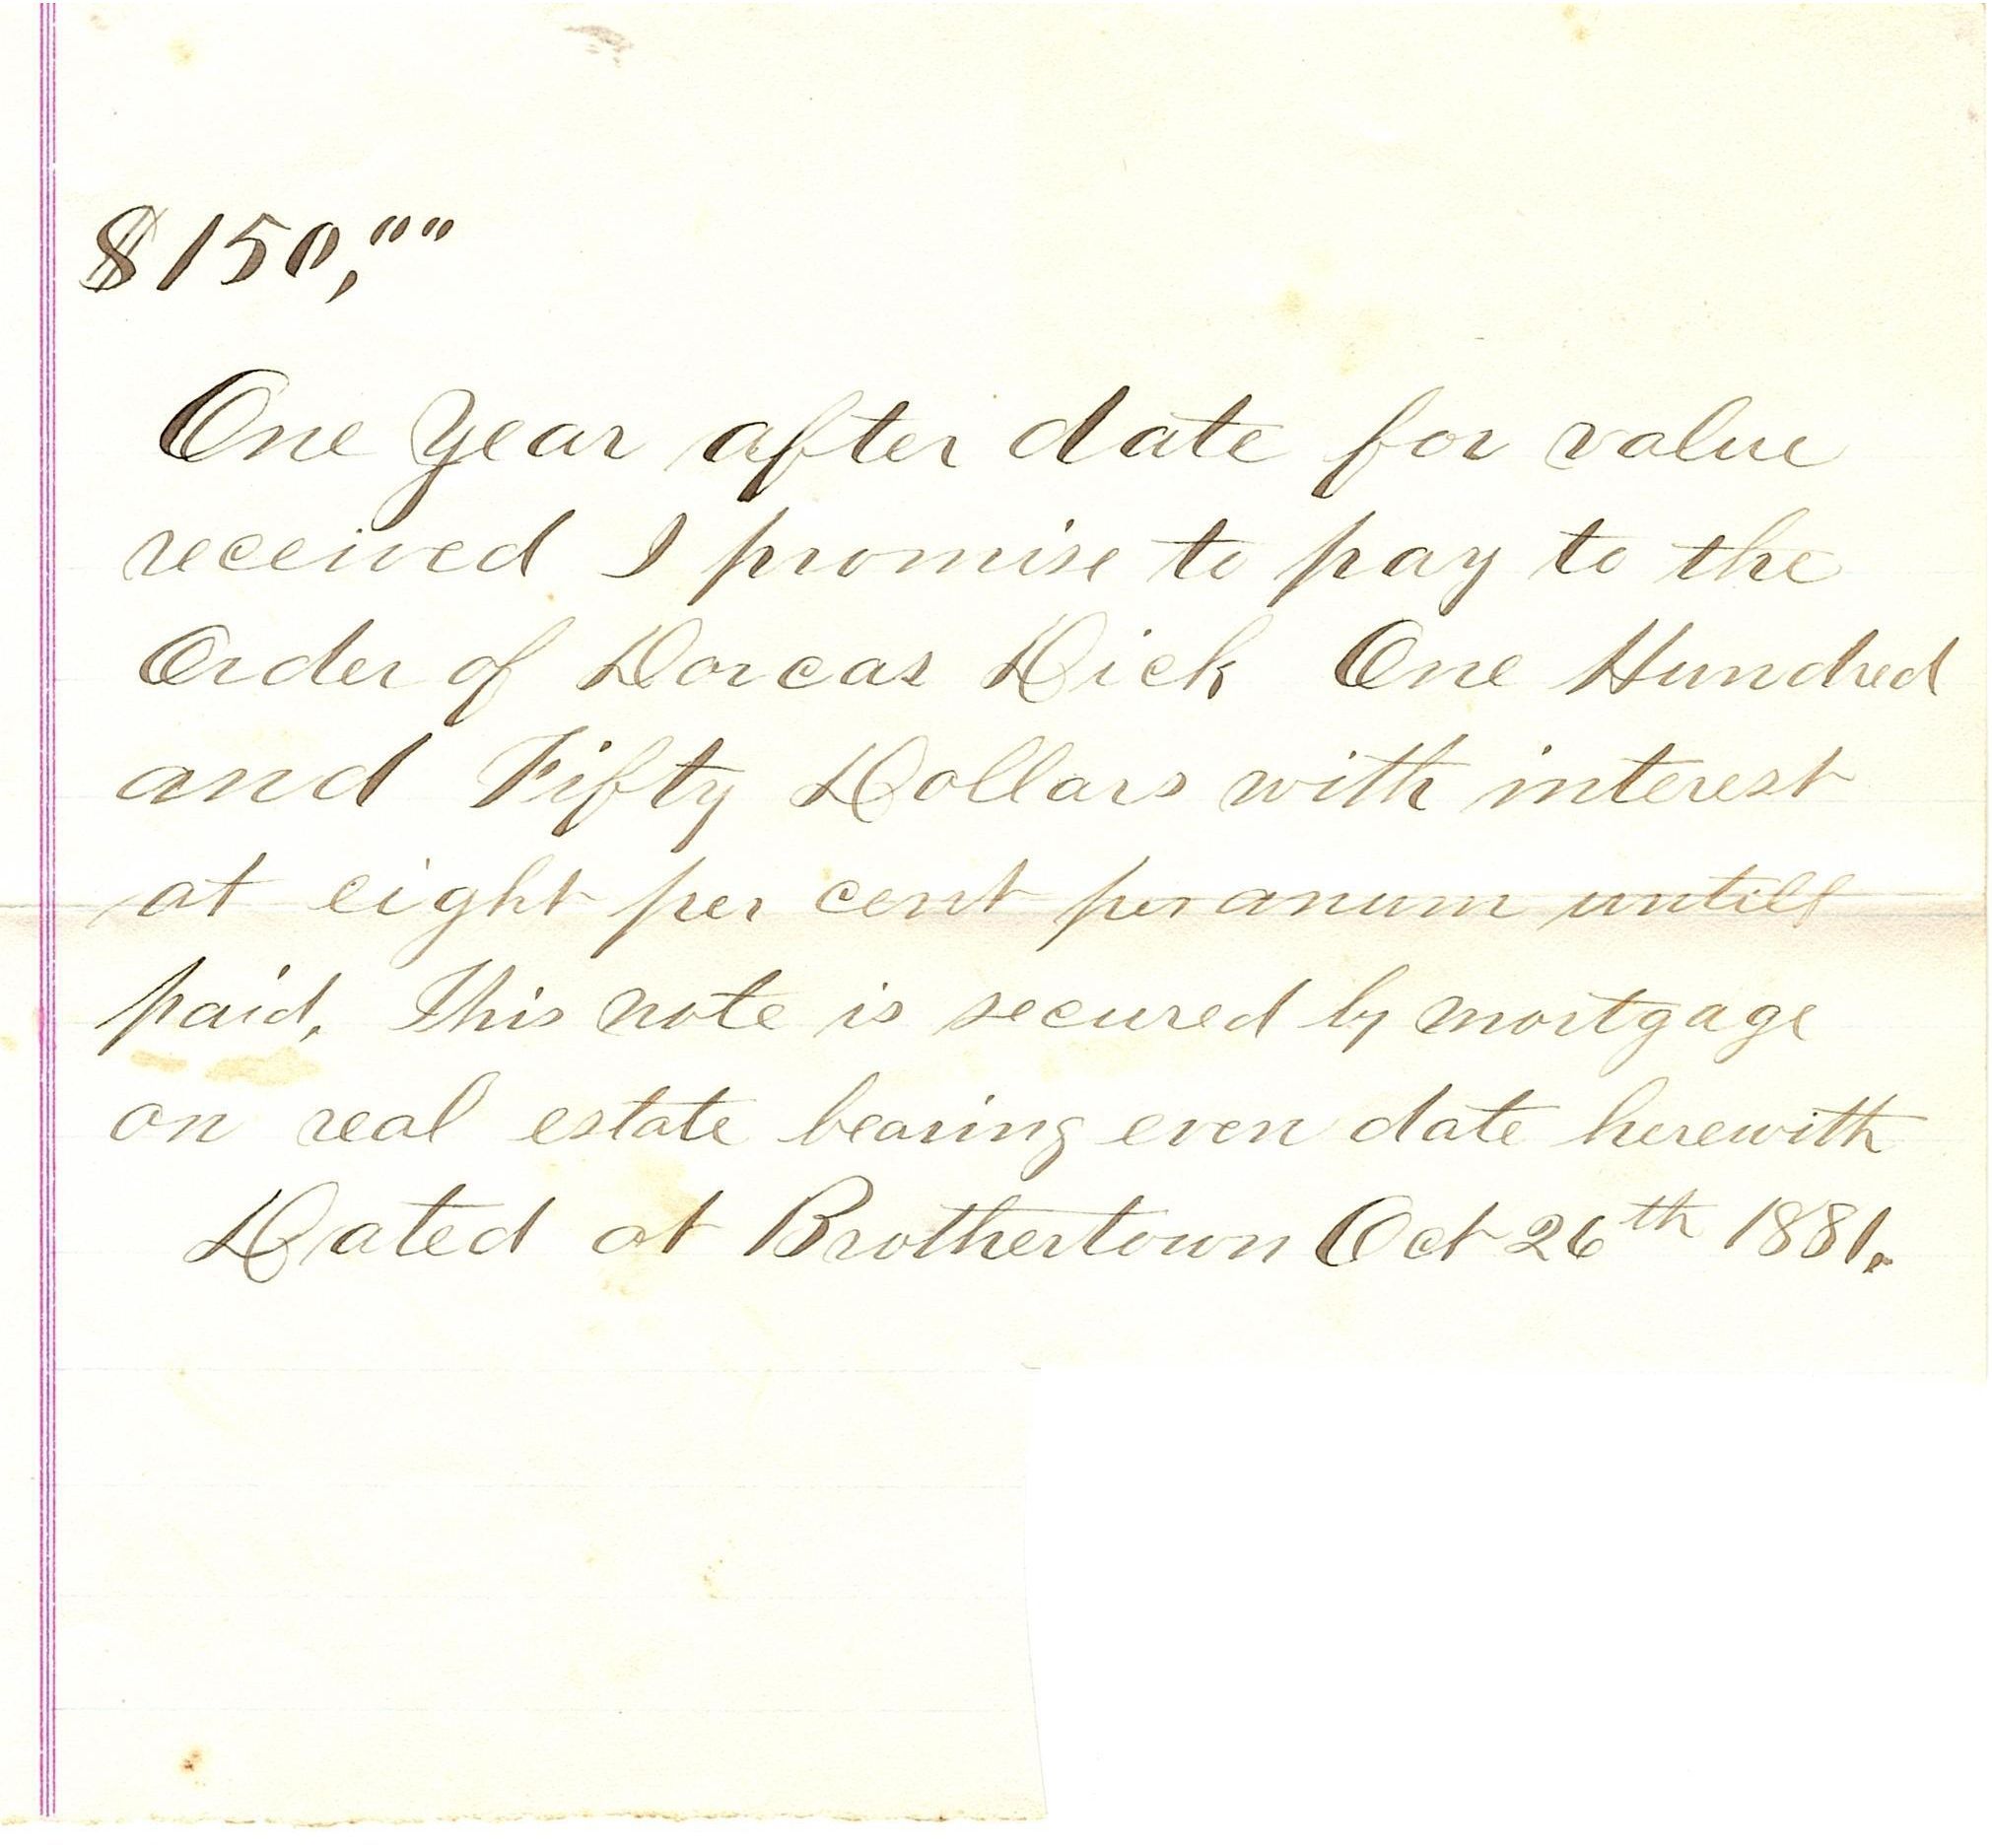 $150,""
One Year after date for value
received I promise to pay to the
Order of Dorcas Dick One Hundred
and Fifty Dollars with interest
at eight per cent per anum untill
paid, This note is secured by mortgage
on real estate bearing even date herewith
Dated at Brothertown Oct 26th 1881.